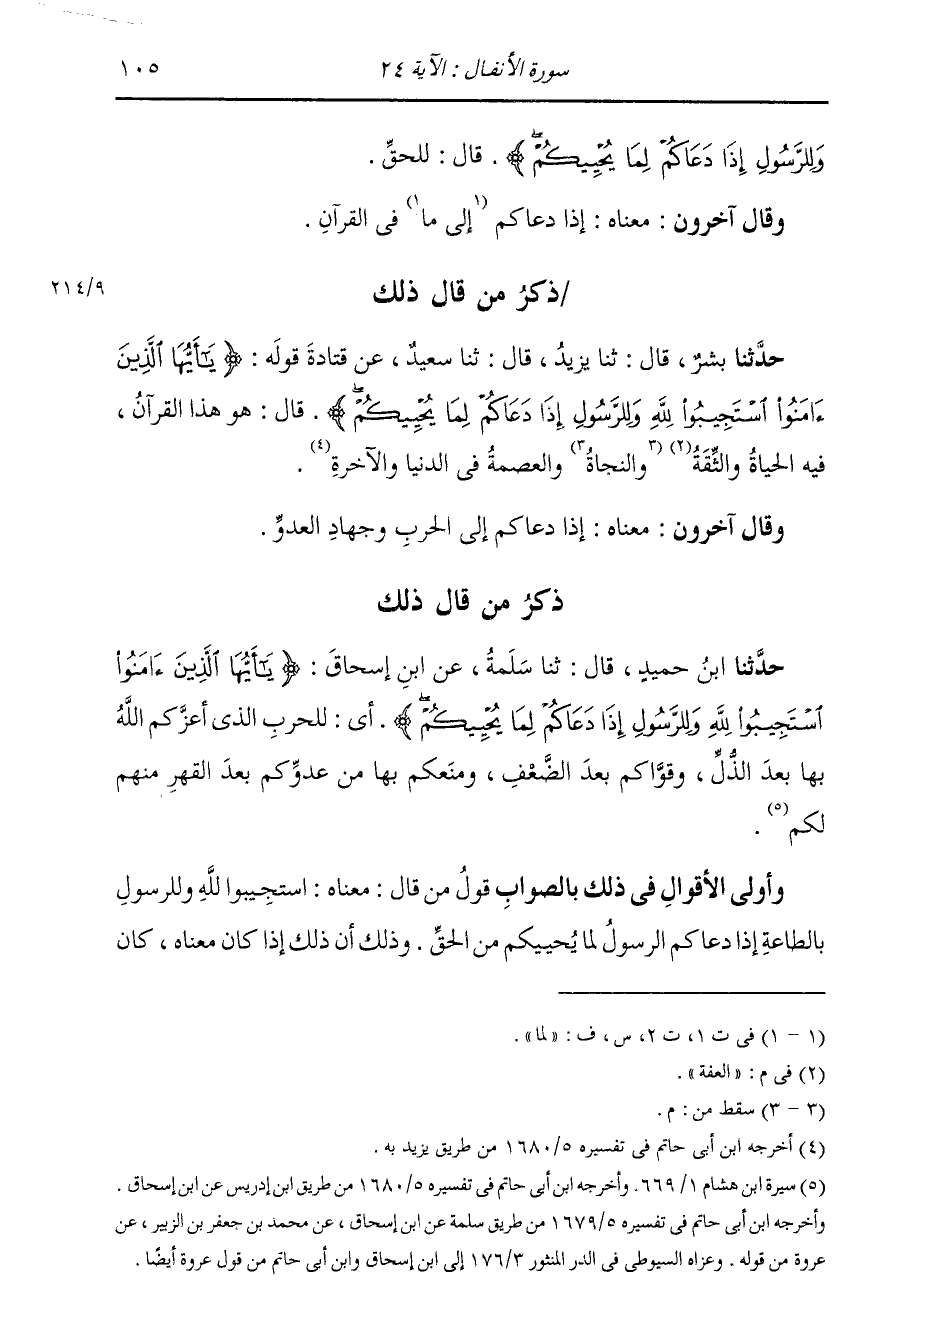 سورة الأنفال : الآية ٢٤
١٠٥
وَلِلرَّسُولِ إِذَا دَعَاكُمْ لِمَا يُحْيِيكُمْ ﴾ . قال : للحقِّ .
وقال آخرون : معناه : إذا دعاكم (١إلى ما١) فى القرآنِ .
/ذكرُ من قال ذلك
٢١٤/٩
حدَّثنا بشرٌ ، قال : ثنا يزيدُ ، قال : ثنا سعيدٌ ، عن قتادةَ قولَه : ﴿ يَٰٓأَيُّهَا ٱلَّذِينَ
ءَامَنُوا۟ ٱسْتَجِيبُوا۟ لِلَّهِ وَلِلرَّسُولِ إِذَا دَعَاكُمْ لِمَا يُحْيِيكُمْ ﴾ . قال : هو هذا القرآنُ ،
فيه الحياةُ والثِّقَةُ(٢) (٣والنجاةُ٣) والعصمةُ فى الدنيا والآخرةِ(٤) .
وقال آخرون : معناه : إذا دعاكم إلى الحربِ وجهادِ العدوِّ .
ذكرُ من قال ذلك
حدَّثنا ابنُ حميدٍ ، قال : ثنا سَلَمةُ ، عن ابنِ إسحاقَ : ﴿ يَٰٓأَيُّهَا ٱلَّذِينَ ءَامَنُوا۟
ٱسْتَجِيبُوا۟ لِلَّهِ وَلِلرَّسُولِ إِذَا دَعَاكُمْ لِمَا يُحْيِيكُمْ ﴾ . أى : للحربِ الذى أعزَّكم اللَّهُ
بها بعدَ الذُّلِّ ، وقوَّاكم بعدَ الضَّعْفِ ، ومنَعكم بها من عدوِّكم بعدَ القهرِ منهم
لكم(٥) .
وأولى الأقوالِ فى ذلك بالصوابِ قولُ من قال : معناه : استجِيبوا للَّهِ وللرسولِ
بالطاعةِ إذا دعاكم الرسولُ لما يُحييكم من الحقِّ . وذلك أن ذلك إذا كان معناه ، كان
(١ - ١) فى ت ١، ت ٢، س ، ف : « لما » .
(٢) فى م : « العفة » .
(٣ - ٣) سقط من : م .
(٤) أخرجه ابن أبى حاتم فى تفسيره ١٦٨٠/٥ من طريق يزيد به .
(٥) سيرة ابن هشام ٦٦٩/١. وأخرجه ابن أبى حاتم فى تفسيره ١٦٨٠/٥ من طريق ابن إدريس عن ابن إسحاق .
وأخرجه ابن أبى حاتم فى تفسيره ١٦٧٩/٥ من طريق سلمة عن ابن إسحاق ، عن محمد بن جعفر بن الزبير ، عن
عروة من قوله . وعزاه السيوطى فى الدر المنثور ١٧٦/٣ إلى ابن إسحاق وابن أبى حاتم من قول عروة أيضًا .